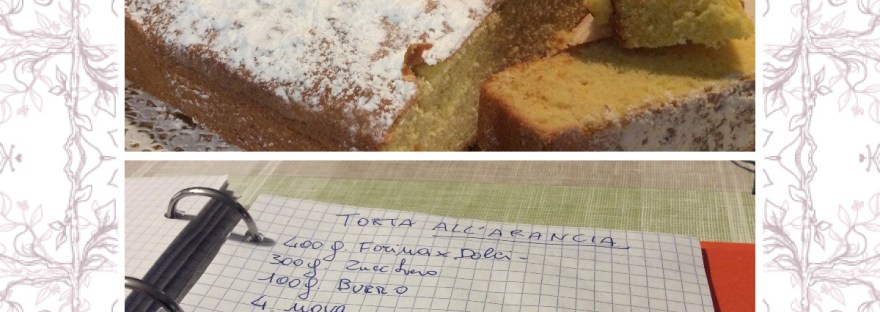 TORTA ALL'ARANCIA
400 g. Farina x Dolci -
300 g. Zucchero
100 g. BURRO
4 UOVA